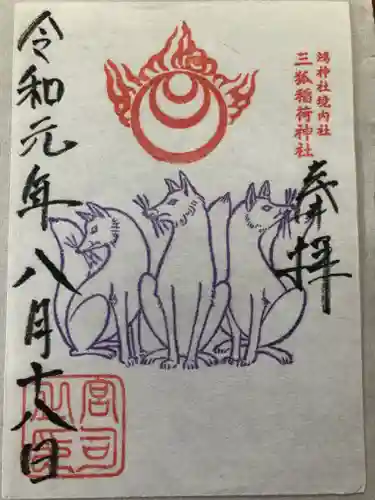 鴻神社境内社
三狐稲荷神社
奉拝
令和元年八月十八日
宮司